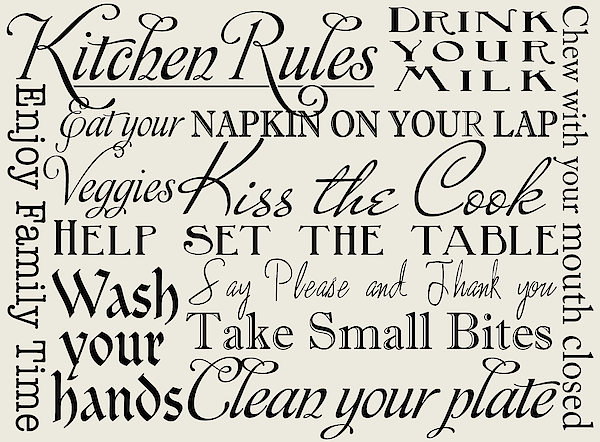 Kitchen Rules
DRINK
YOUR
MILK
Chew with your mouth closed
Enjoy Family Time
Eat your
Veggies
NAPKIN ON YOUR LAP
Kiss the Cook
HELP SET THE TABLE
Wash
your
hands
Say Please and Thank you
Take Small Bites
Clean your plate